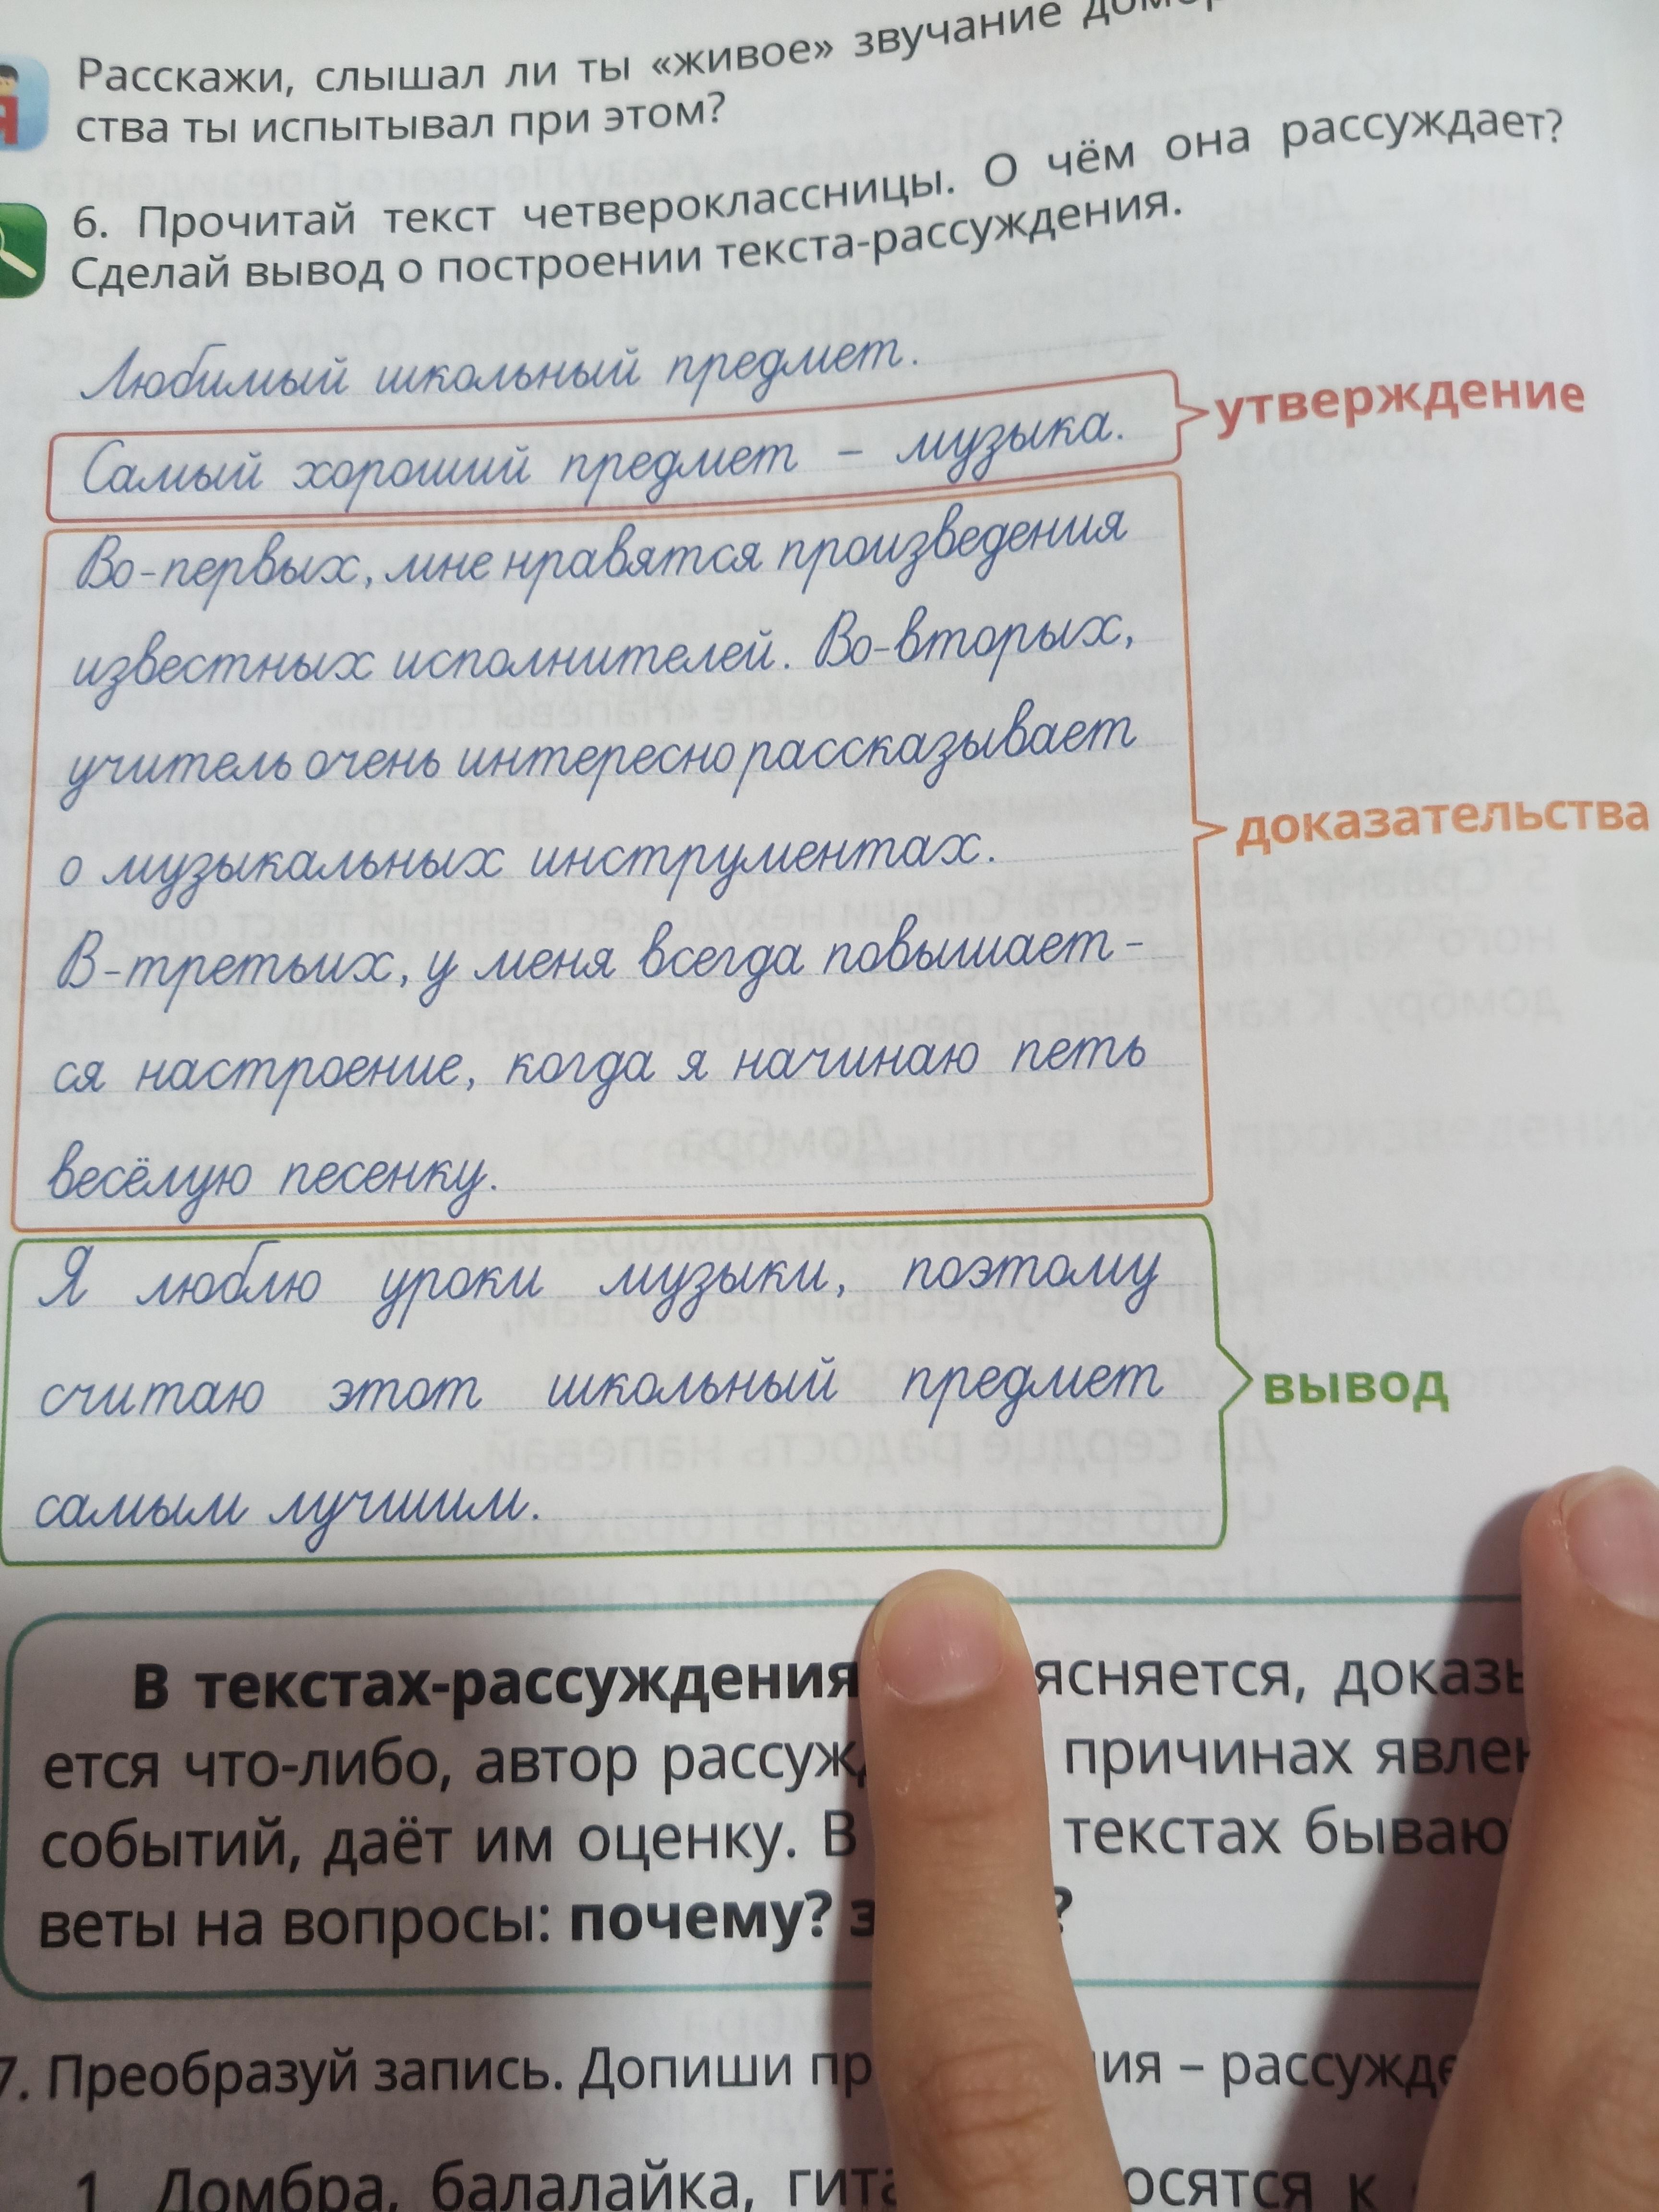 Я
Расскажи, слышал ли ты «живое» звучание
ства ты испытывал при этом?
6. Прочитай текст четвероклассницы. О чём она рассуждает?
Сделай вывод о построении текста-рассуждения.
Любимый школьный предмет.
Самый хороший предмет – музыка.
утверждение
Во-первых, мне нравятся произведения
известных исполнителей. Во-вторых,
учитель очень интересно рассказывает
о музыкальных инструментах.
В-третьих, у меня всегда повышает-
ся настроение, когда я начинаю петь
весёлую песенку.
доказательства
Я люблю уроки музыки, поэтому
считаю этот школьный предмет
самым лучшим.
вывод
В текстах-рассуждения ясняется, доказы
ется что-либо, автор рассуж причинах явлен
событий, даёт им оценку. В текстах бываю
веты на вопросы: почему? з ?
7. Преобразуй запись. Допиши пр ия – рассужде
1 Домбра, балалайка, гита осятся к